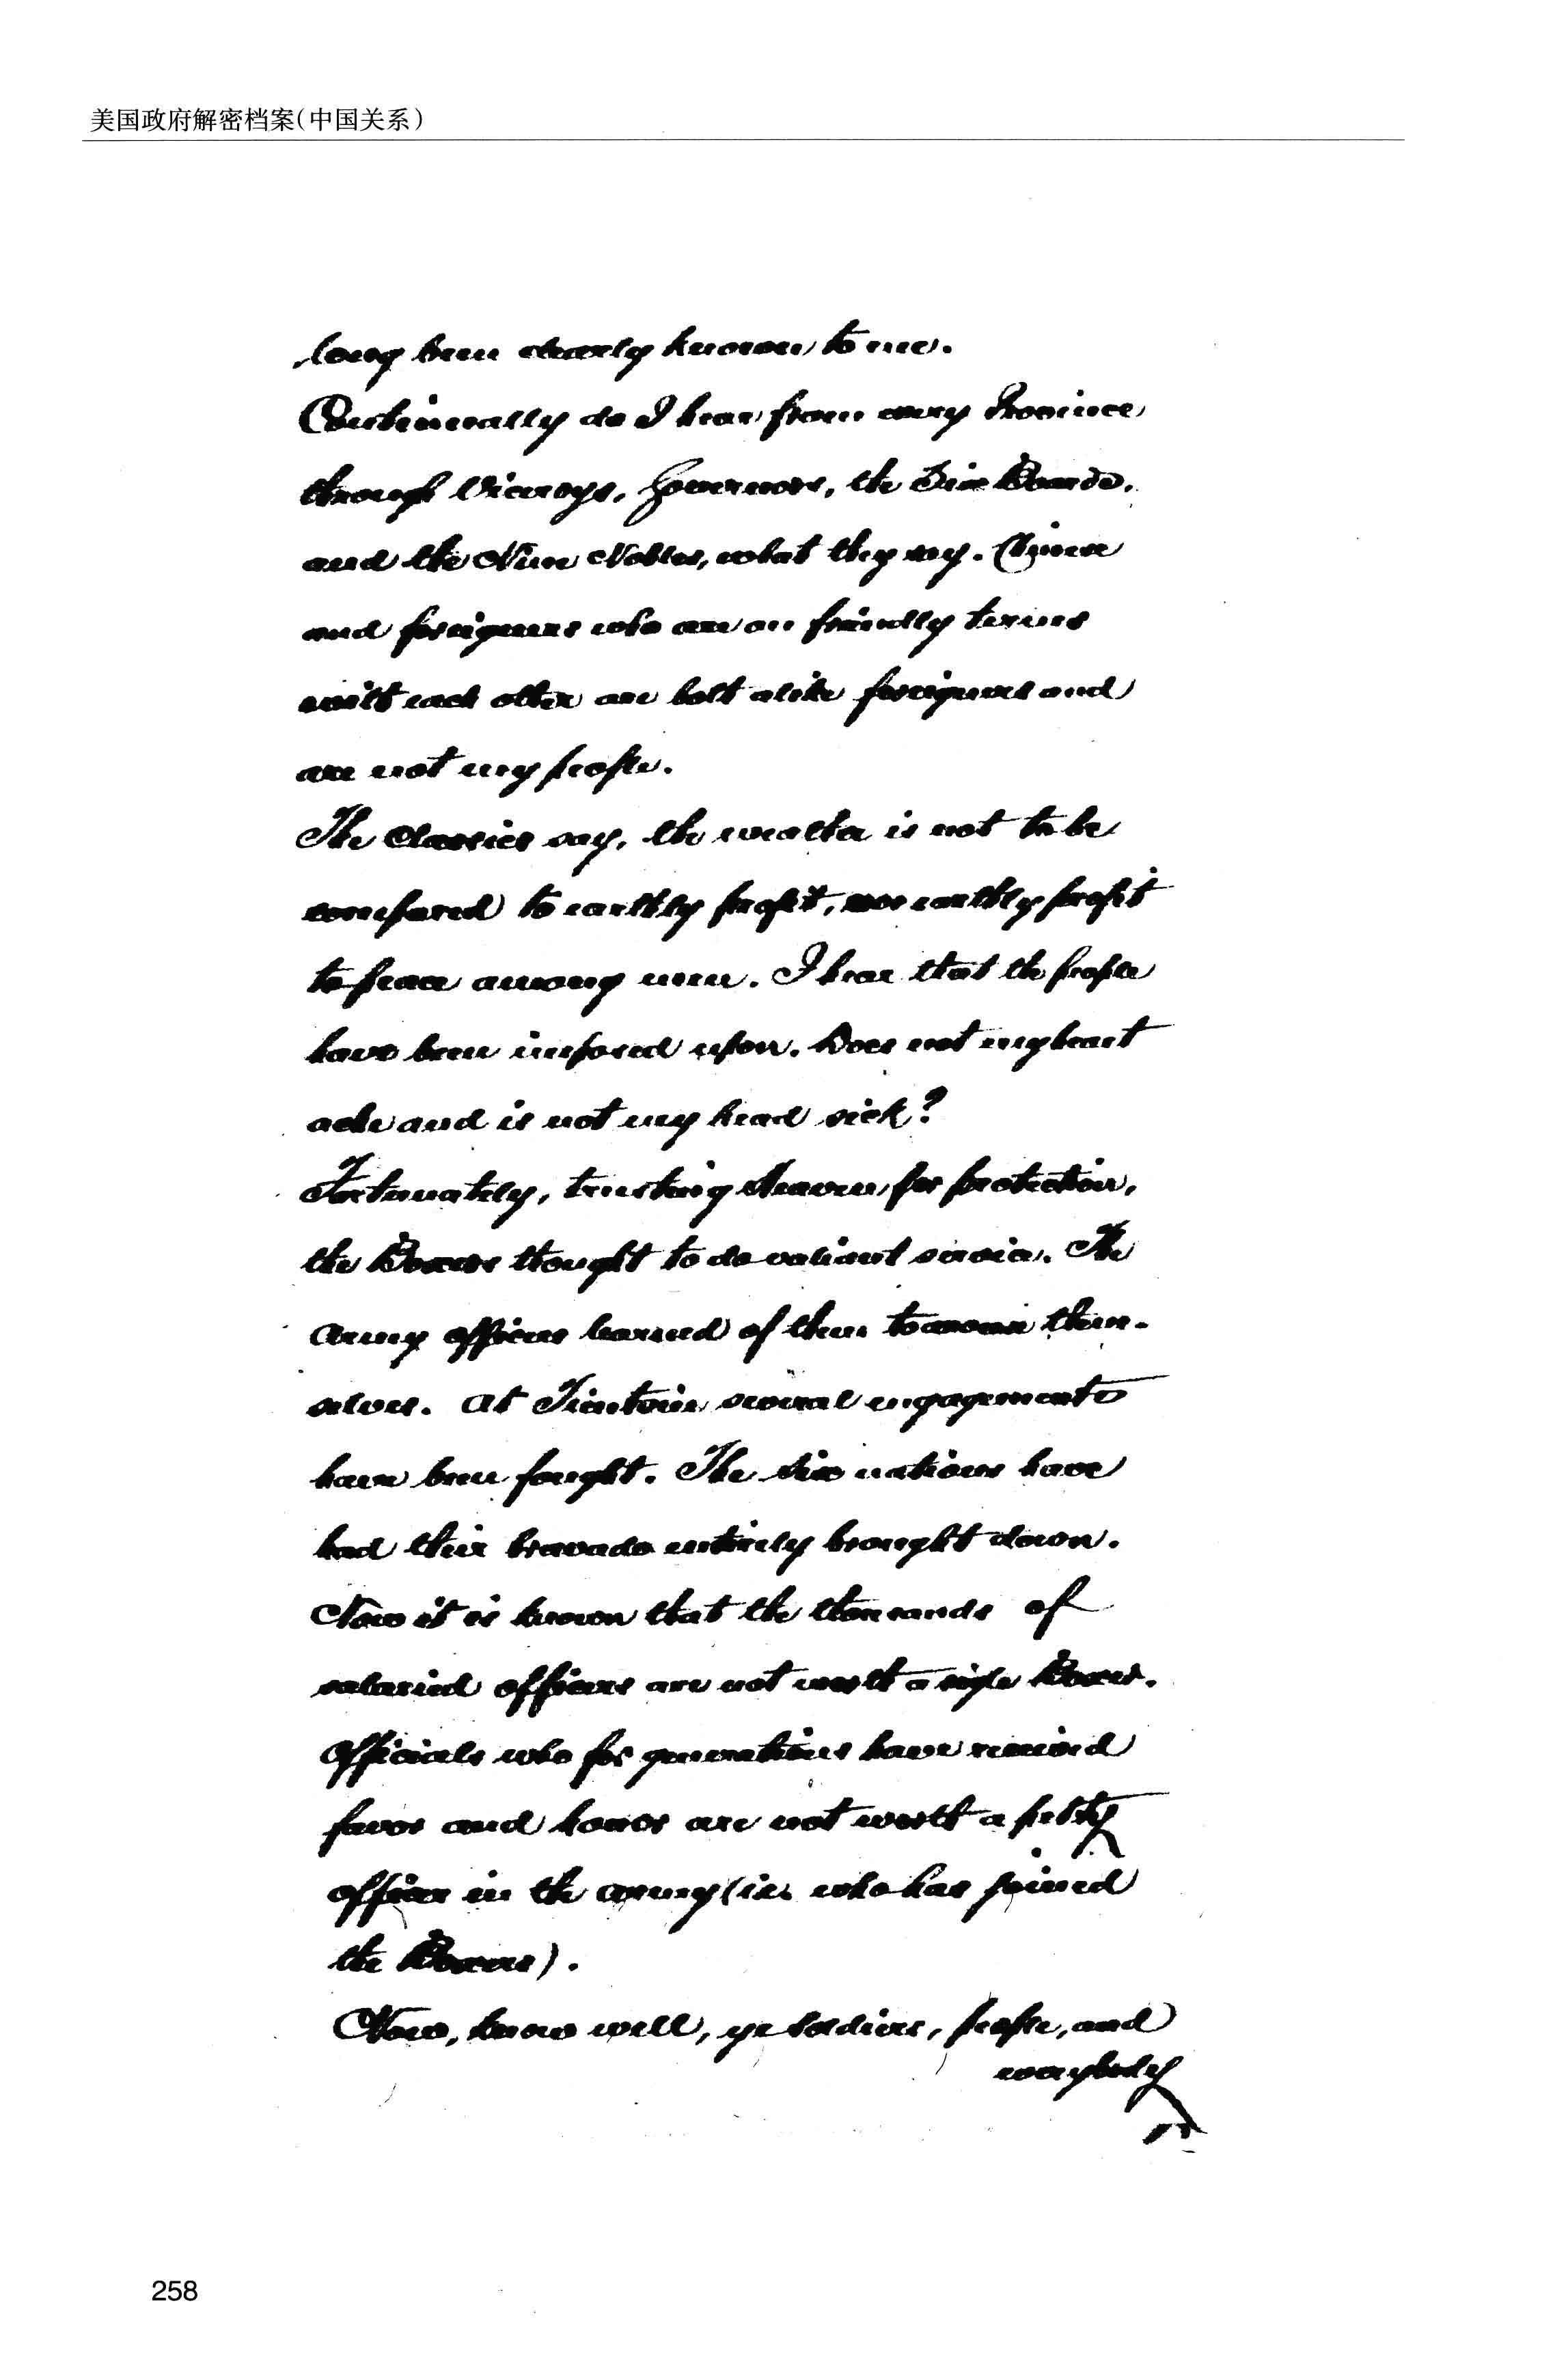 美国政府解密档案(中国关系)
long been clearly known to me.
Continually do I hear from every Province
through Viceroys, Governors, the Six Boards,
and the Nine Nobles, what they say. Chinese
and foreigners who are on friendly terms
with each other are both alike foreigners and
are not my people.
The Classics say, the weather is not to be
compared to earthly profit, nor earthly profit
to peace among men. I hear that the people
have been imposed upon. Does not my heart
ache and is not my head sick?
Fortunately, trusting Heaven for protection,
the Boxers thought to do valiant service. The
Army officers learned of them to them-
selves. At Tientsin several engagements
have been fought. The six nations have
had their bravado entirely brought down.
Now it is known that the thousands of
salaried officers are not worth a single Boxer.
Officials who for generations have received
favor and honor are not worth a petty
officer in the army (i.e. who has joined
the Boxers).
Now, know well, ye soldiers, people, and
everybody
258